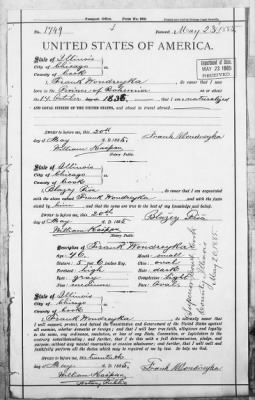 Passport Office. Form No.
No. 1749 Issued, May 23 1885
UNITED STATES OF AMERICA.
State of Illinois
City of Chicago
County of Cook
I, Frank Wondreyka, do swear that I was
born in the Province of Bohemia on
14 October 1836, that I am a naturalized
AND LOYAL CITIZEN OF THE UNITED STATES, and about to travel abroad
Department of State,
MAY 23 1885
RECEIVED
Sworn to before me, this 20th
day of May A. D. 1885 Frank Wondreyka
William Kaspar
Notary Public
State of Illinois
City of Chicago
County of Cook
I, do swear that I am acquainted
with the above named Frank Wondreyka and with the facts stated
by him, and that the same are true to the best of my knowledge and belief.
Sworn to before me, this 20th
day of May A. D. 1885
William Kaspar
Notary Public
Description of Frank Wondreyka
Age: 48 Mouth: small
Stature: 5 Chin: oval
Forehead: high Hair: dark
Eyes: gray Complexion: light
Nose: medium Face: oval
State of Illinois
City of Chicago
County of Cook
I, Frank Wondreyka, do solemnly swear that I
will support, protect, and defend the Constitution and Government of the United States against
all enemies, whether domestic or foreign; and that I will bear true faith, allegiance and loyalty
to the same, any ordinance, resolution, or law of any State, Convention, or Legislature to the
contrary notwithstanding; and further, that I do this with a full determination, pledge, and
purpose, without any mental reservation or evasion whatsoever; and further, that I will well and
faithfully perform all the duties which may be required of me by law. So help me God.
Sworn to before me, this twentieth
day of May A. D. 1885 Frank Wondreyka
William Kaspar
Notary Public